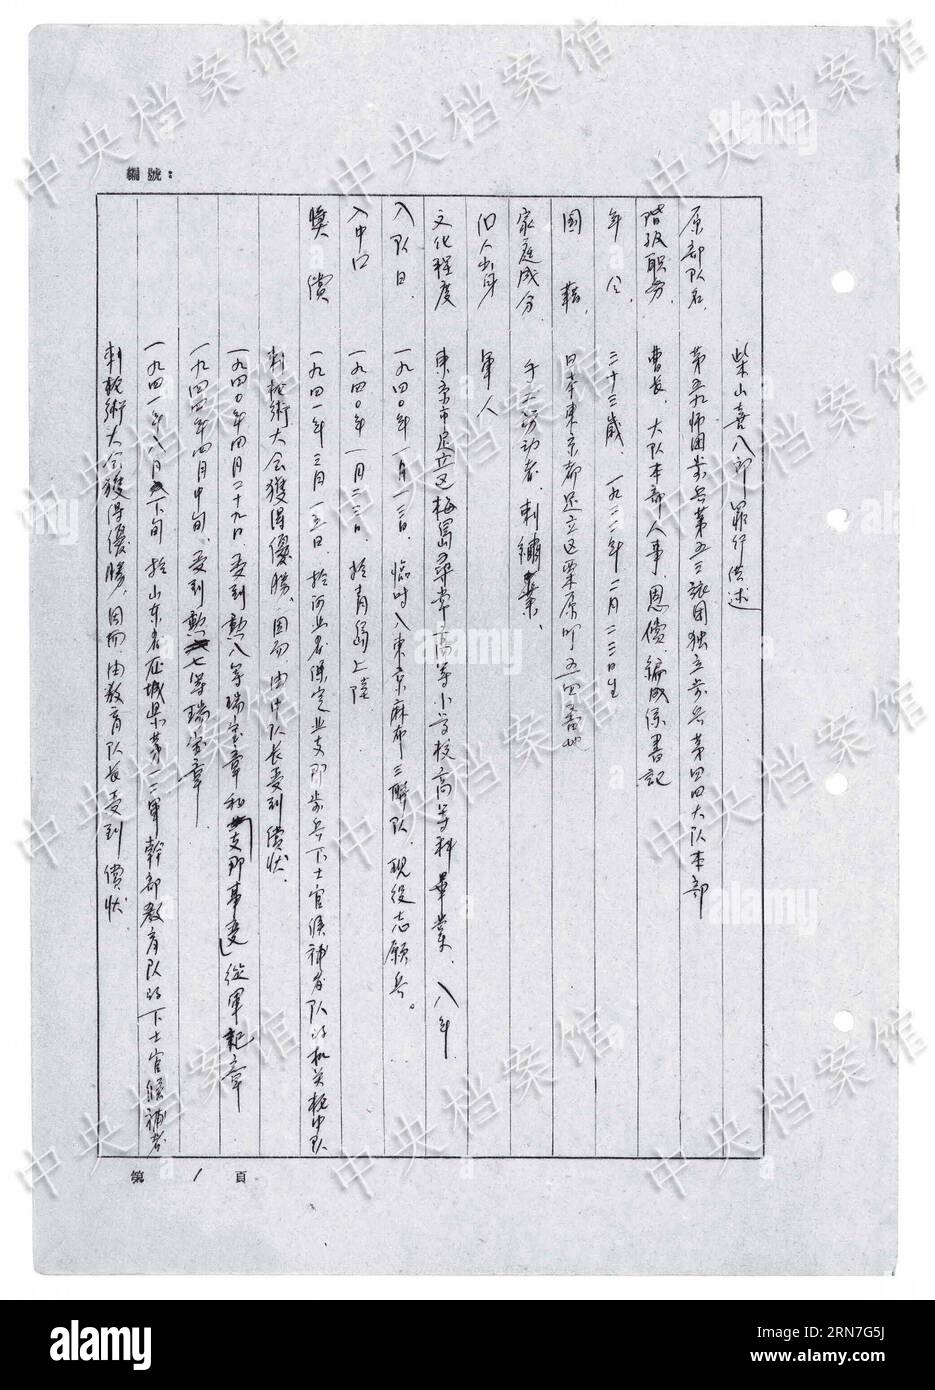 編號：
柴山喜八郎 罪行供述
原部队名、 第五九师团步兵第五三旅团独立步兵第四四大队本部
階級职务、 曹长、大队本部人事、恩償、編成係書記
年 令 三十三歳、一九二二年二月二三日生
国 藉、 日本東京都足立区栗原町五四番地
家庭成分、 手工労动者、刺繍業、
旧人出身 軍人
文化程度 東京市足立区梅島尋常高等小学校高等科畢業、八年
入队日、 一九四〇年一月一三日、臨时入東京麻布三聯队、現役志願兵。
入中口 一九四〇年一月二三日、於青島上陸
獎 償 一九四一年三月一五日、於河北省保定北支那步兵下士官候補者队的机关枪中队
刺枪術大会獲得優勝、因而由中队长受到償状、
一九四〇年四月二十九日受到勲八等瑞宝章和「支那事变」從軍記章
一九四四年四月中旬、受到勲七等瑞宝章
一九四一年八月下旬 於山东省 城県第一二軍幹部教育队的下士官候補者
刺枪術大会獲得優勝、因而由教育队长受到償状
第 1 頁
中央档案馆
alamy
Image ID: 2RN7G5J
www.alamy.com